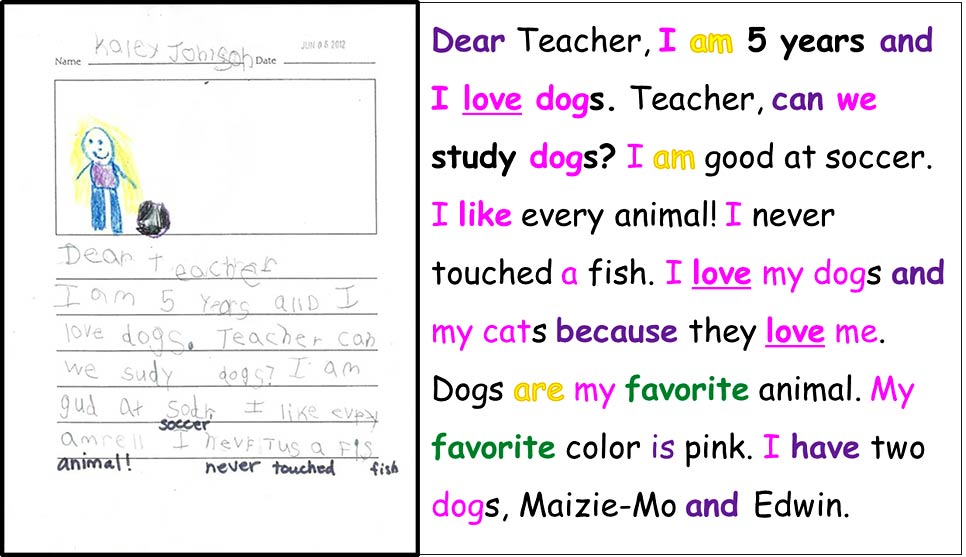 Kaley Johnson
Name Date JUN 05 2012
Dear teacher
I am 5 years and I
love dogs. Teacher can
we sudy dogs? I am
gud at sodr I like evry
soccer
amrell I nevr tus a fis
animal! never touched fish
Dear Teacher, I am 5 years and
I love dogs. Teacher, can we
study dogs? I am good at soccer.
I like every animal! I never
touched a fish. I love my dogs and
my cats because they love me.
Dogs are my favorite animal. My
favorite color is pink. I have two
dogs, Maizie-Mo and Edwin.